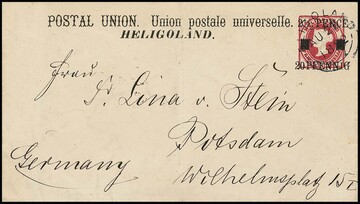 POSTAL UNION. Union postale universelle.
HELIGOLAND.
2½ PENCE
20 PFENNIG
Frau
Lina v. Stein
Potsdam
Germany
Wilhelmsplatz 15